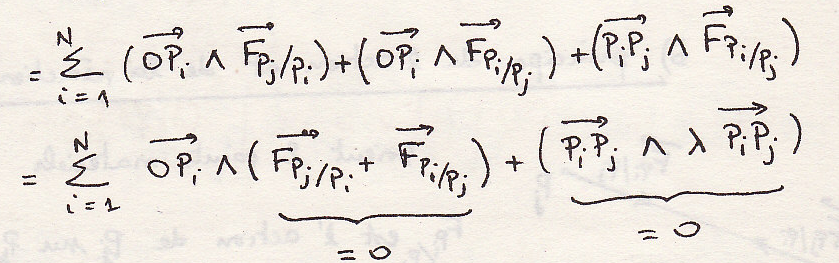 = \sum_{i=1}^{N} (\overrightarrow{OP_i} ∧ \overrightarrow{F_{P_j/P_i}}) + (\overrightarrow{OP_i} ∧ \overrightarrow{F_{P_i/P_j}}) + (\overrightarrow{P_iP_j} ∧ \overrightarrow{F_{P_i/P_j}})
= \sum_{i=1}^{N} \overrightarrow{OP_i} ∧ (\overrightarrow{F_{P_j/P_i}} + \overrightarrow{F_{P_i/P_j}}) + (\overrightarrow{P_iP_j} ∧ λ \overrightarrow{P_iP_j})
= 0 = 0